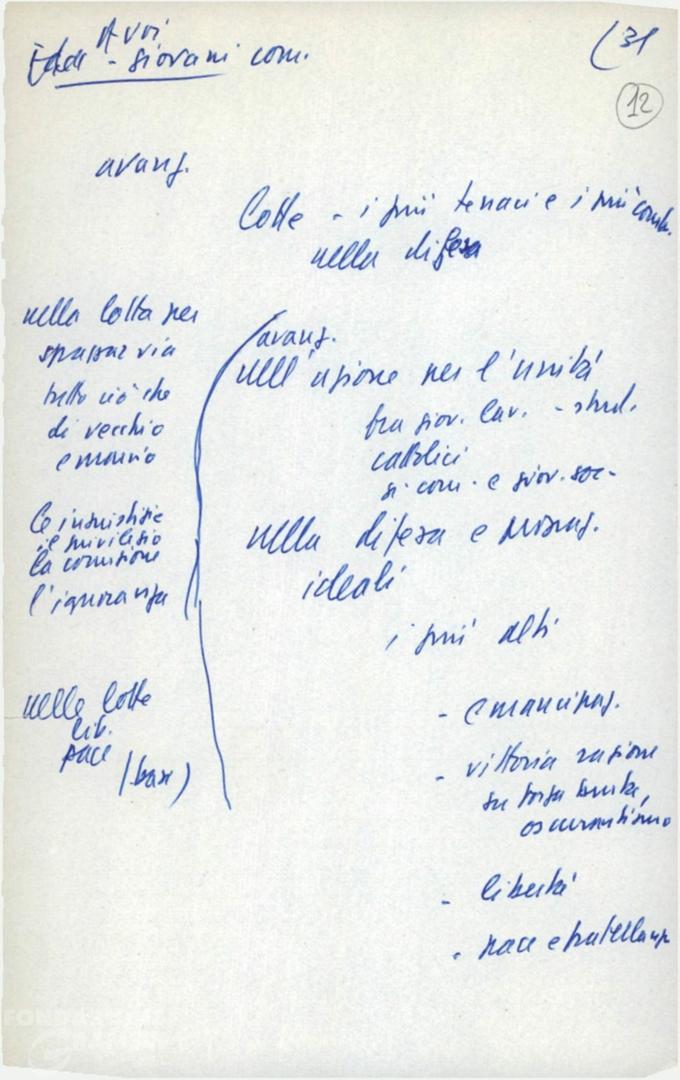 A voi
- giovani com.
(31
12
avang.
Lotte - i più tenaci e i più comb.
nella difesa
nella lotta per
spazzar via
tutto ciò che
di vecchio
e marcio
le ingiustizie
il privilegio
la corruzione
l'ignoranza
nelle lotte
lib.
pace
(base)
avang.
nell'azione per l'unità
fra giov. lav. - stud.
cattolici
gi. com. e giov. soc.
nella difesa e propag.
ideali
i più alti
- emancipaz.
- vittoria ragione
su forza bruta,
oscurantismo
- libertà
- pace e fratellanza
FONDAZIONE